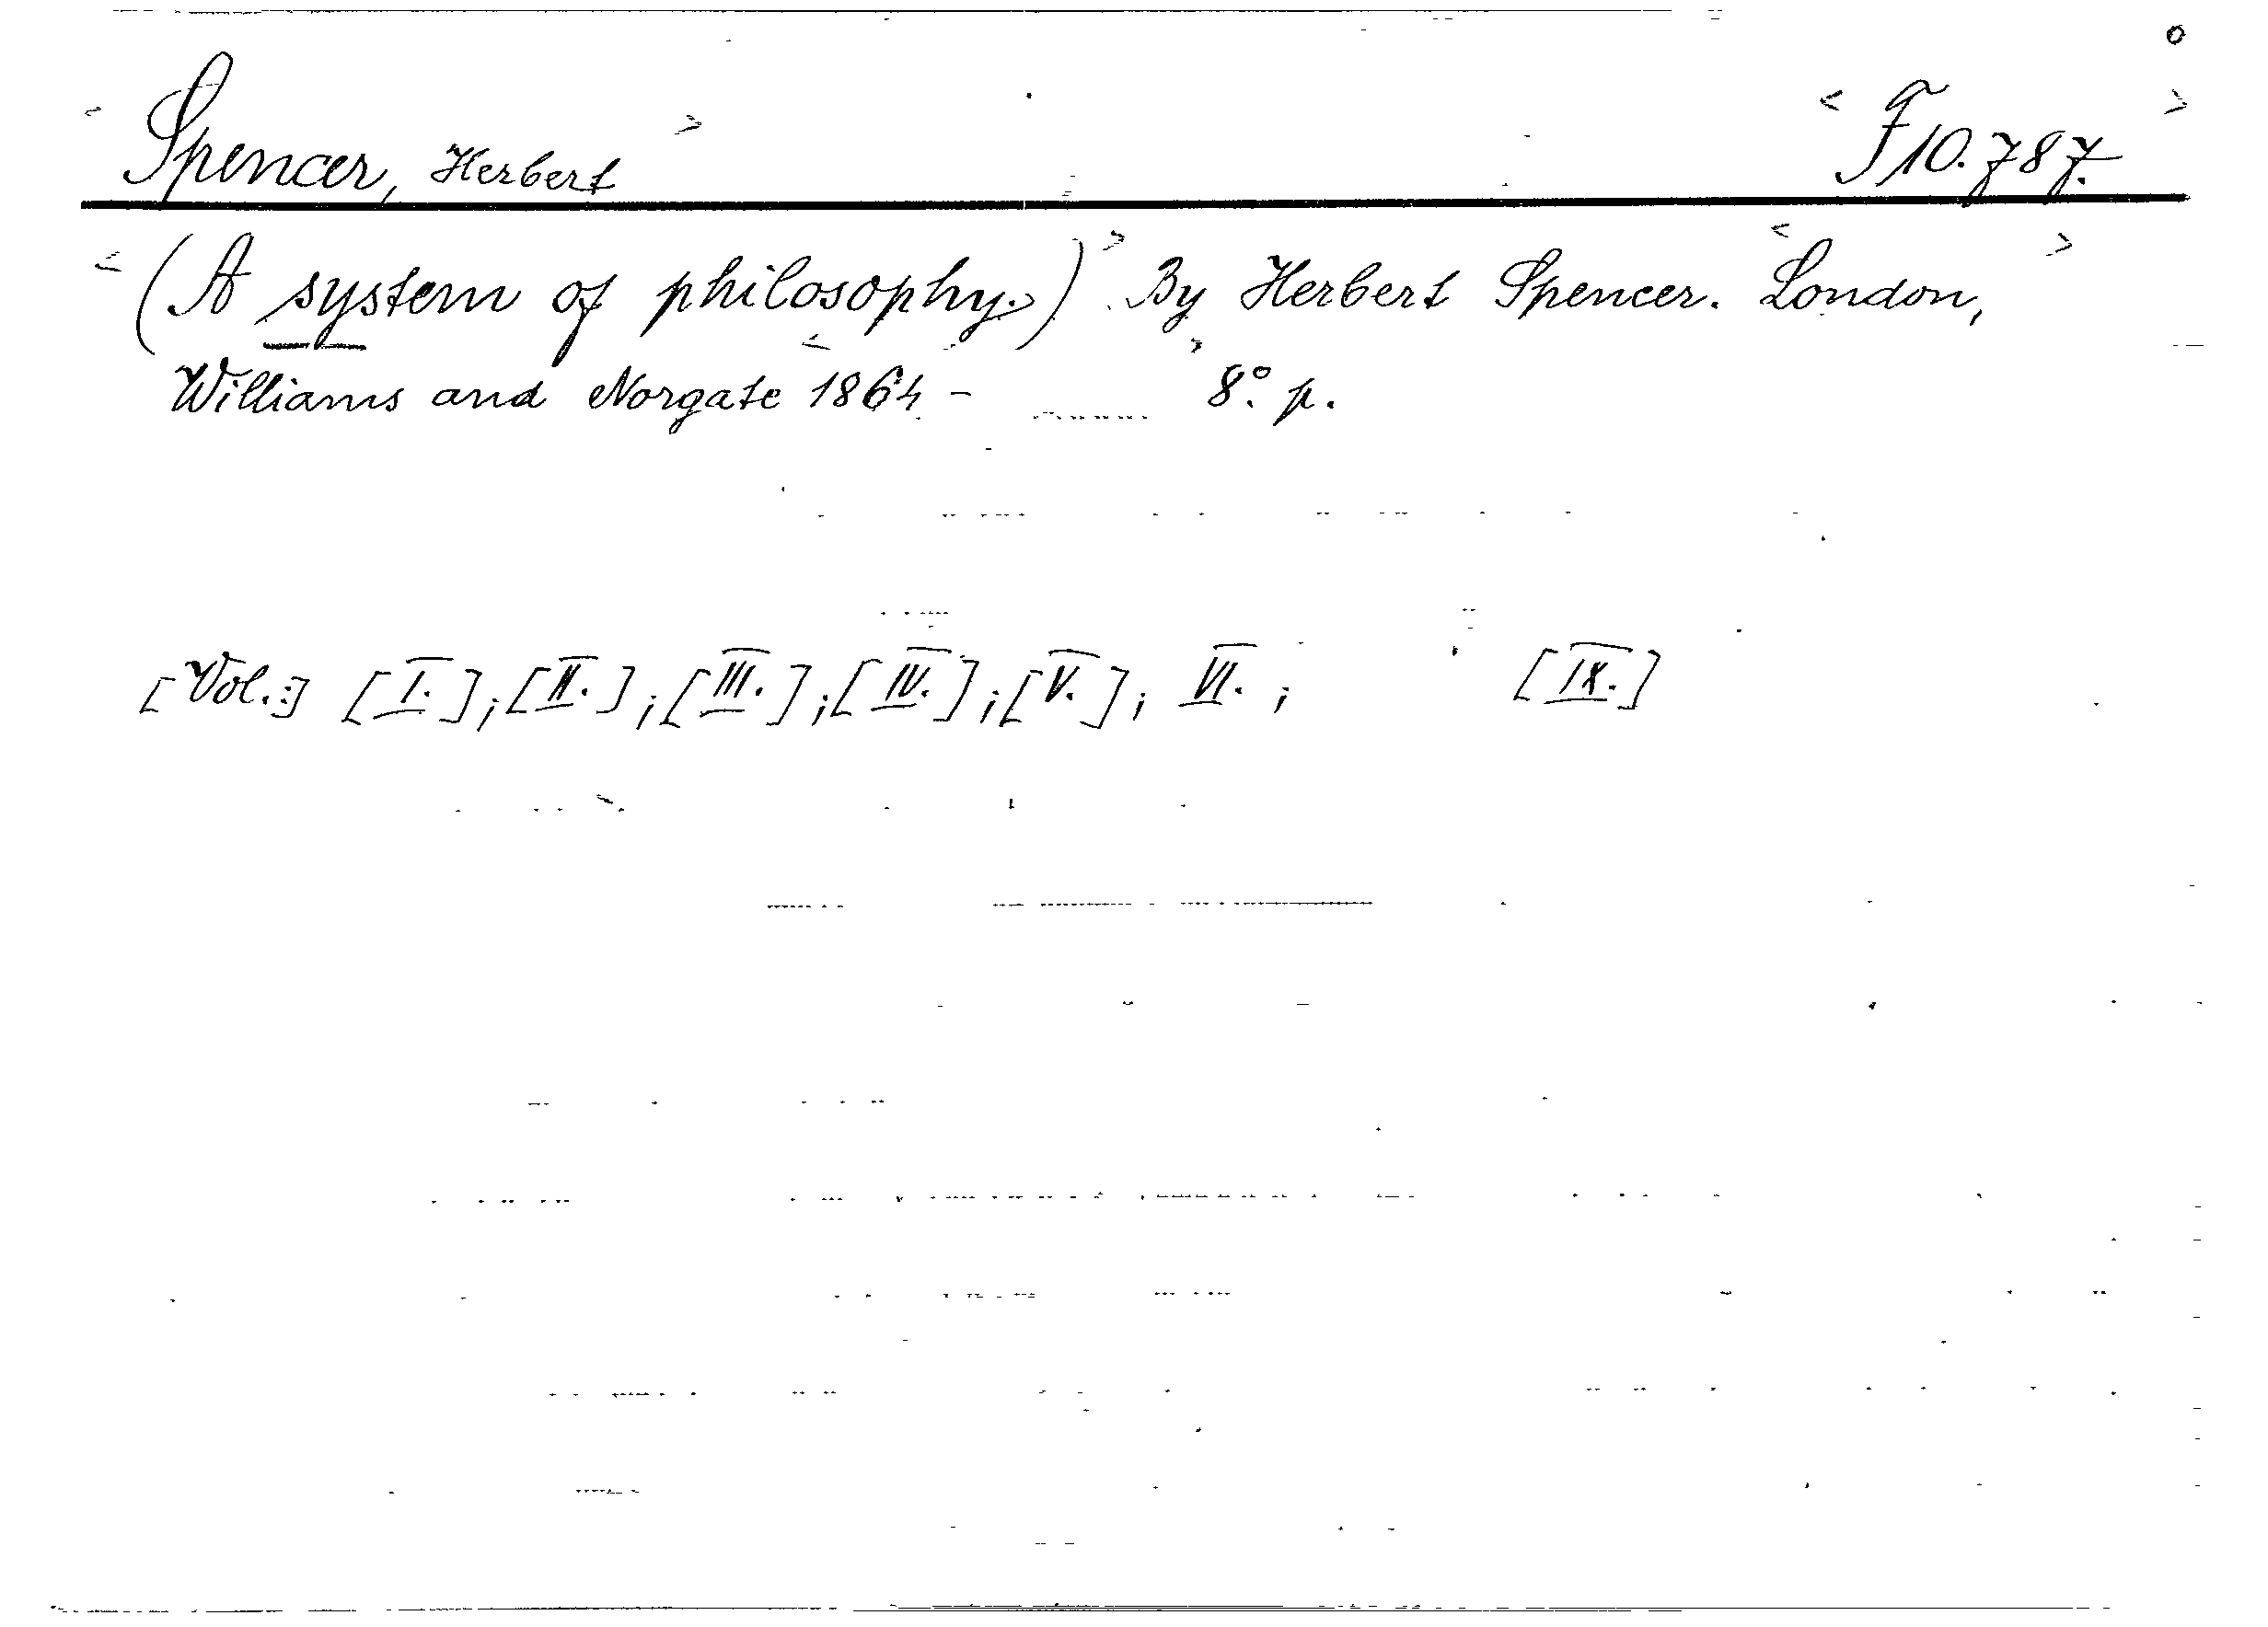 < Spencer, Herbert > < F10.787. >
< (A system of philosophy.) > By Herbert Spencer. < London, >
Williams and Norgate < 1864 - > 8° p.
[Vol.:] [I.]; [II.]; [III.]; [IV.]; [V.]; VI.; [IX.]